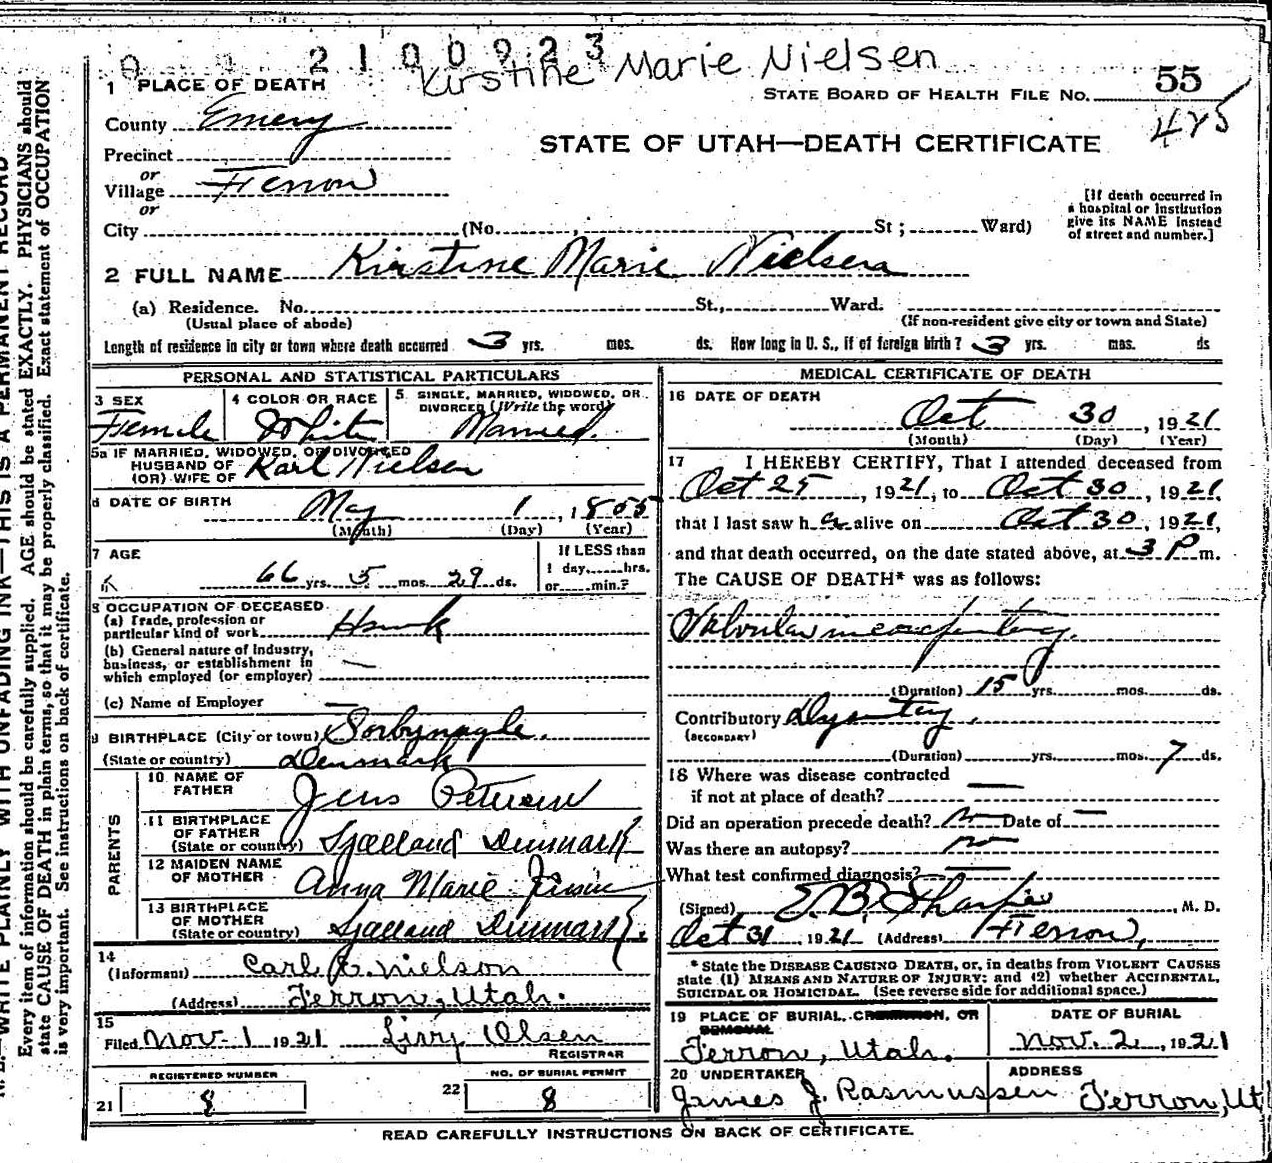 2100923
Kirstine Marie Nielsen
1 PLACE OF DEATH
STATE BOARD OF HEALTH FILE No. 55
425
County Emery
STATE OF UTAH—DEATH CERTIFICATE
Precinct
or
Village Ferron
or
[If death occurred in
a hospital or institution
give its NAME instead
of street and number.]
City (No. , St ; Ward)
2 FULL NAME Kirstine Marie Nielsen
(a) Residence. No. St., Ward.
(Usual place of abode) (If non-resident give city or town and State)
Length of residence in city or town where death occurred 3 yrs. mos. ds. How long in U. S., if of foreign birth? 3 yrs. mos. ds
PERSONAL AND STATISTICAL PARTICULARS
3 SEX Female
4 COLOR OR RACE White
5 SINGLE, MARRIED, WIDOWED, OR
DIVORCED (Write the word) Married.
5a IF MARRIED, WIDOWED, OR DIVORCED
HUSBAND OF
(OR) WIFE OF Karl Nielsen
6 DATE OF BIRTH May 1, 1855
(Month) (Day) (Year)
7 AGE
66 yrs. 5 mos. 29 ds.
If LESS than
1 day, hrs.
or min.?
8 OCCUPATION OF DECEASED
(a) Trade, profession or
particular kind of work Hswk
(b) General nature of industry,
business, or establishment in
which employed (or employer) —
(c) Name of Employer —
9 BIRTHPLACE (City or town)
(State or country) Denmark
PARENTS
10 NAME OF
FATHER Jens Petersen
11 BIRTHPLACE
OF FATHER
(State or country) Sjælland Denmark
12 MAIDEN NAME
OF MOTHER Anna Marie
13 BIRTHPLACE
OF MOTHER
(State or country) Sjælland Denmark.
14
(Informant) Carl Nielson
(Address) Ferron, Utah.
15
Filed Nov. 1 1921 Livy Olsen
REGISTRAR
REGISTERED NUMBER
21 8
NO. OF BURIAL PERMIT
22 8
MEDICAL CERTIFICATE OF DEATH
16 DATE OF DEATH
Oct 30, 1921
(Month) (Day) (Year)
17 I HEREBY CERTIFY, That I attended deceased from
Oct 25, 1921, to Oct 30, 1921
that I last saw her alive on Oct 30, 1921,
and that death occurred, on the date stated above, at 3 P m.
The CAUSE OF DEATH* was as follows:
Valvular incompetency.
(Duration) 15 yrs. mos. ds.
Contributory Dysentery.
(SECONDARY)
(Duration) yrs. mos. 7 ds.
18 Where was disease contracted
if not at place of death? —
Did an operation precede death? no Date of —
Was there an autopsy? no
What test confirmed diagnosis? —
(Signed) , M. D.
Oct 31, 1921 (Address) Ferron,
* State the DISEASE CAUSING DEATH, or, in deaths from VIOLENT CAUSES
state (1) MEANS AND NATURE OF INJURY; and (2) whether ACCIDENTAL,
SUICIDAL OR HOMICIDAL. (See reverse side for additional space.)
19 PLACE OF BURIAL, CREMATION, OR
REMOVAL
Ferron, Utah.
DATE OF BURIAL
Nov. 2, 1921
20 UNDERTAKER
James J. Rasmussen
ADDRESS
Ferron, Ut
READ CAREFULLY INSTRUCTIONS ON BACK OF CERTIFICATE.
N. B.—WRITE PLAINLY WITH UNFADING INK—THIS IS A PERMANENT RECORD
Every item of information should be carefully supplied. AGE should be stated EXACTLY. PHYSICIANS should
state CAUSE OF DEATH in plain terms, so that it may be properly classified. Exact statement of OCCUPATION
is very important. See instructions on back of certificate.